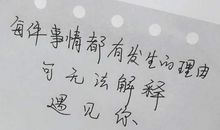 每件事情都有发生的理由
可无法解释
遇见你